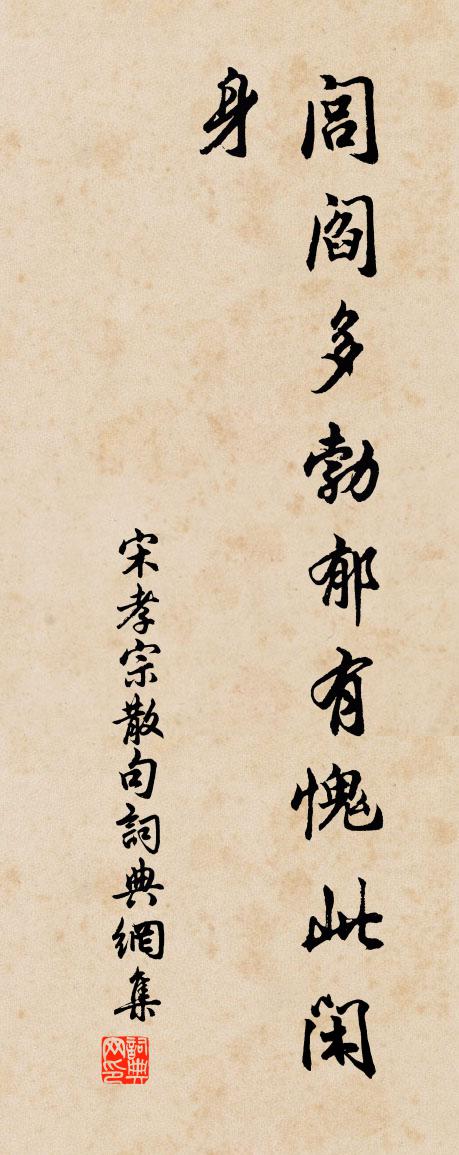 闾阎多勃郁有愧此闲
身
宋孝宗散句詞典網集
詞典
网印